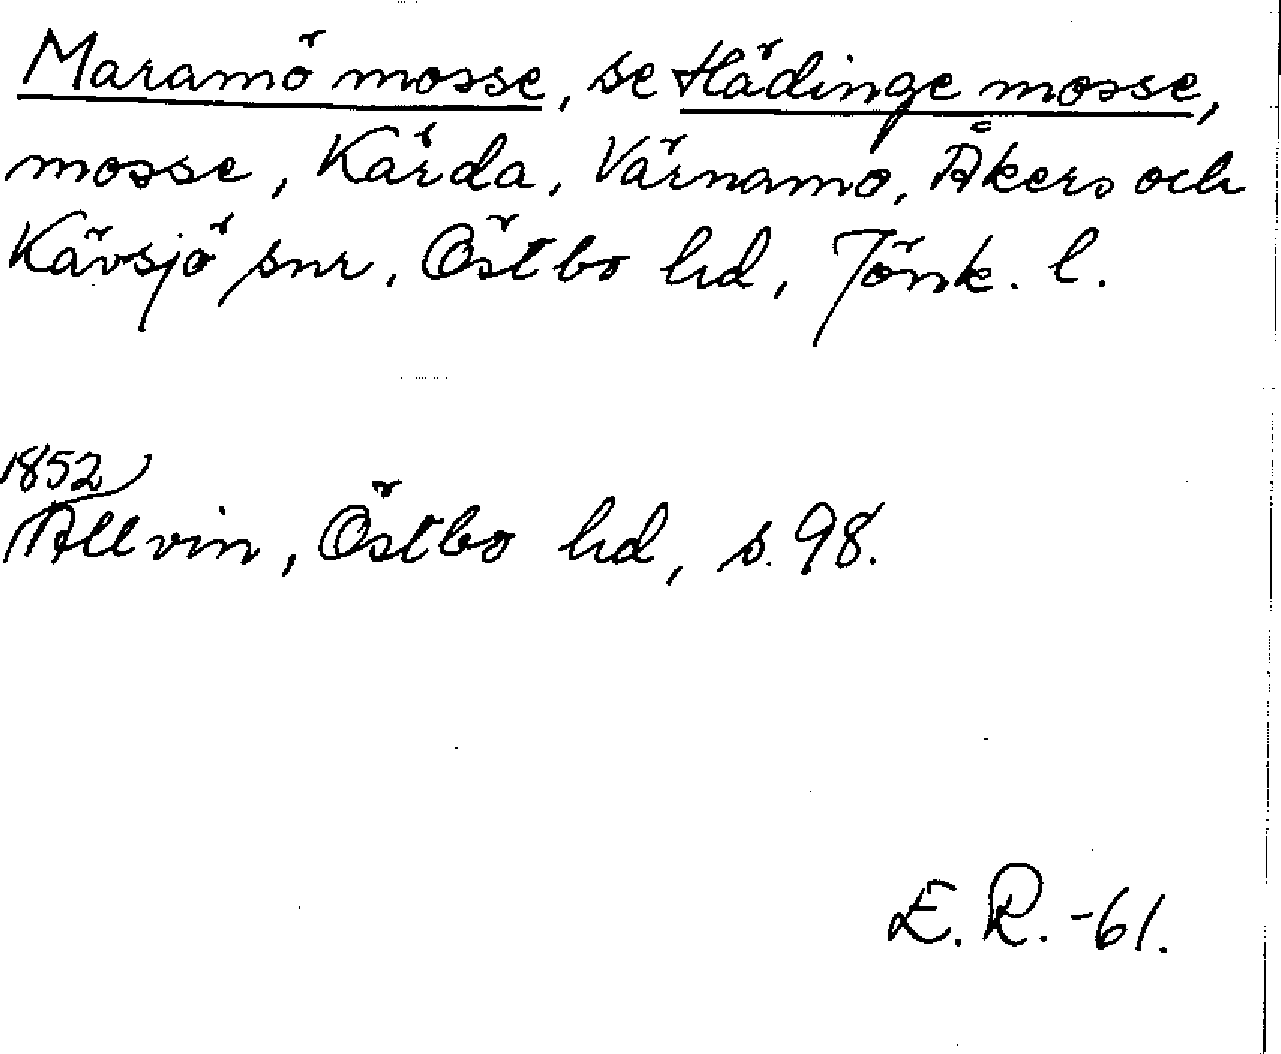 Maramö mosse, se Hädinge mosse,
mosse, Kärda, Värnamo, Åkers och
Kävsjö snr, Östbo hd, Jönk. l.
1852
Allvin, Östbo hd, s. 98.
E. R. -61.